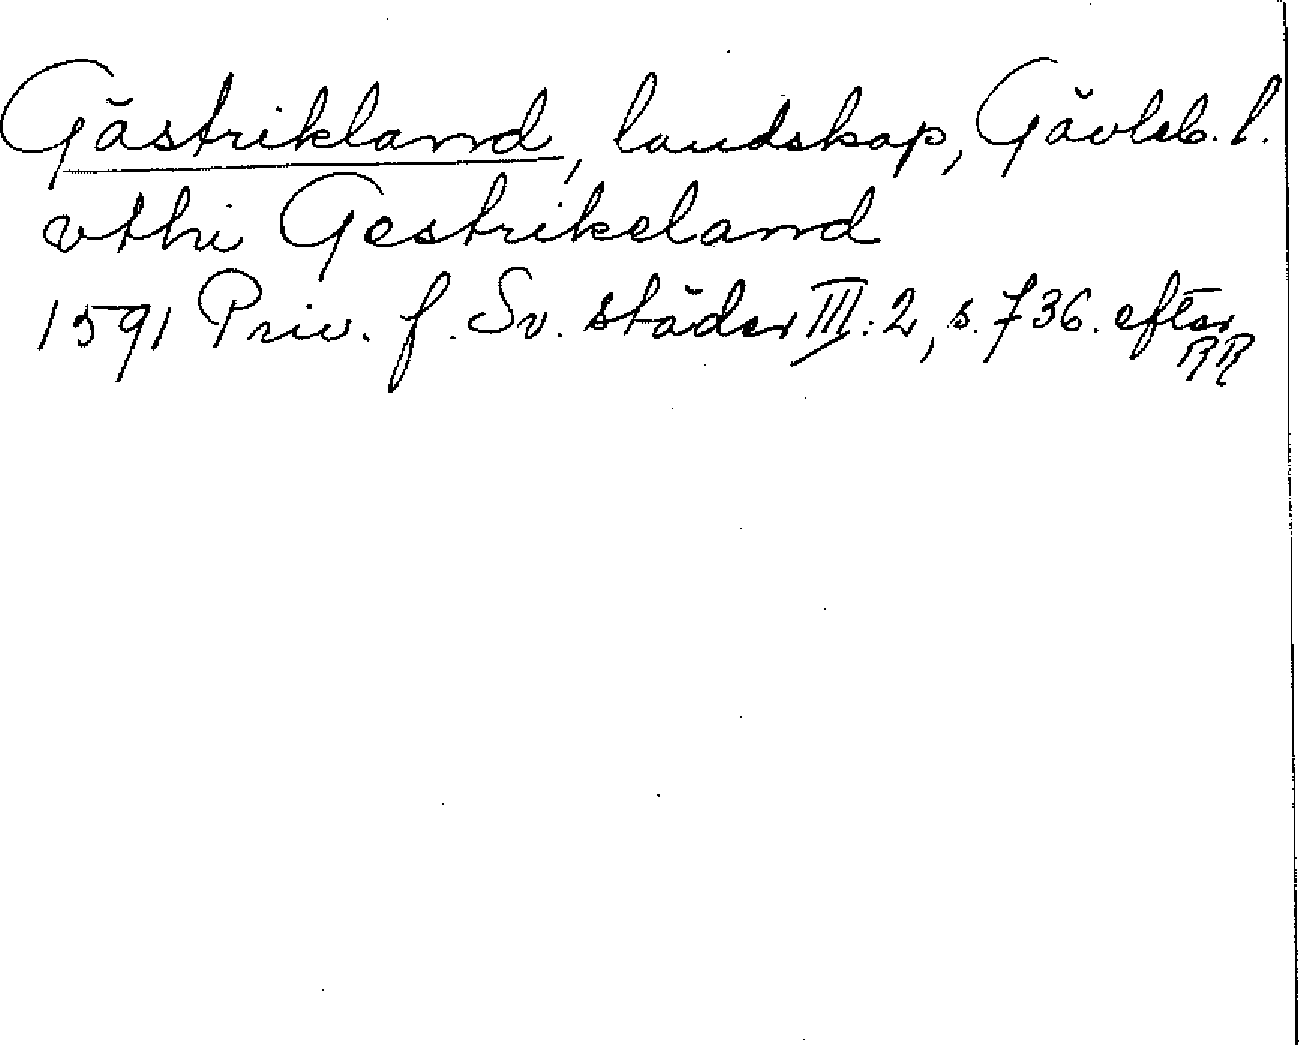 Gästrikland, landskap, Gävleb. l.
vthi Gestrikeland
1591 Priv. f. Sv. städer III:2, s. 736. efter
RR